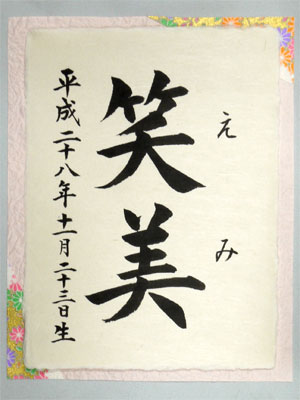 えみ
笑美
平成二十八年十一月二十三日生